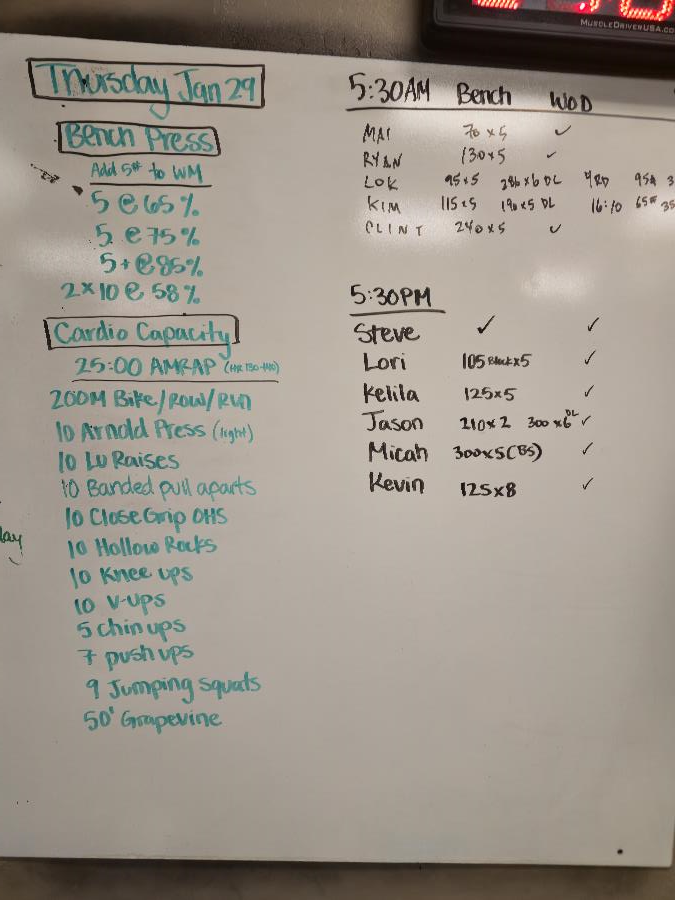 MUSCLEDRIVERUSA.CO
Thursday Jan 29
Bench Press
Add 5# to WM
5 @ 65%
5 @ 75%
5+ @ 85%
2x10 @ 58%
Cardio Capacity
25:00 AMRAP (HR 130-140)
200M Bike/Row/Run
10 Arnold Press (light)
10 Lu Raises
10 Banded pull aparts
10 Close Grip OHS
10 Hollow Rocks
10 Knee ups
10 V-ups
5 chin ups
7 push ups
9 Jumping Squats
50' Grapevine
lay
5:30AM Bench WOD
MAI 70 x 5 ✓
RYAN 130x5 ✓
LOK 95x5 286x6 DL 4RD 95# 3
KIM 115x5 190x5 DL 16:10 65# 35
CLINT 240x5 ✓
5:30PM
Steve ✓ ✓
Lori 105 Block x5 ✓
Kelila 125x5 ✓
Jason 210x2 300x6 DL ✓
Micah 300x5 (BS) ✓
Kevin 125x8 ✓